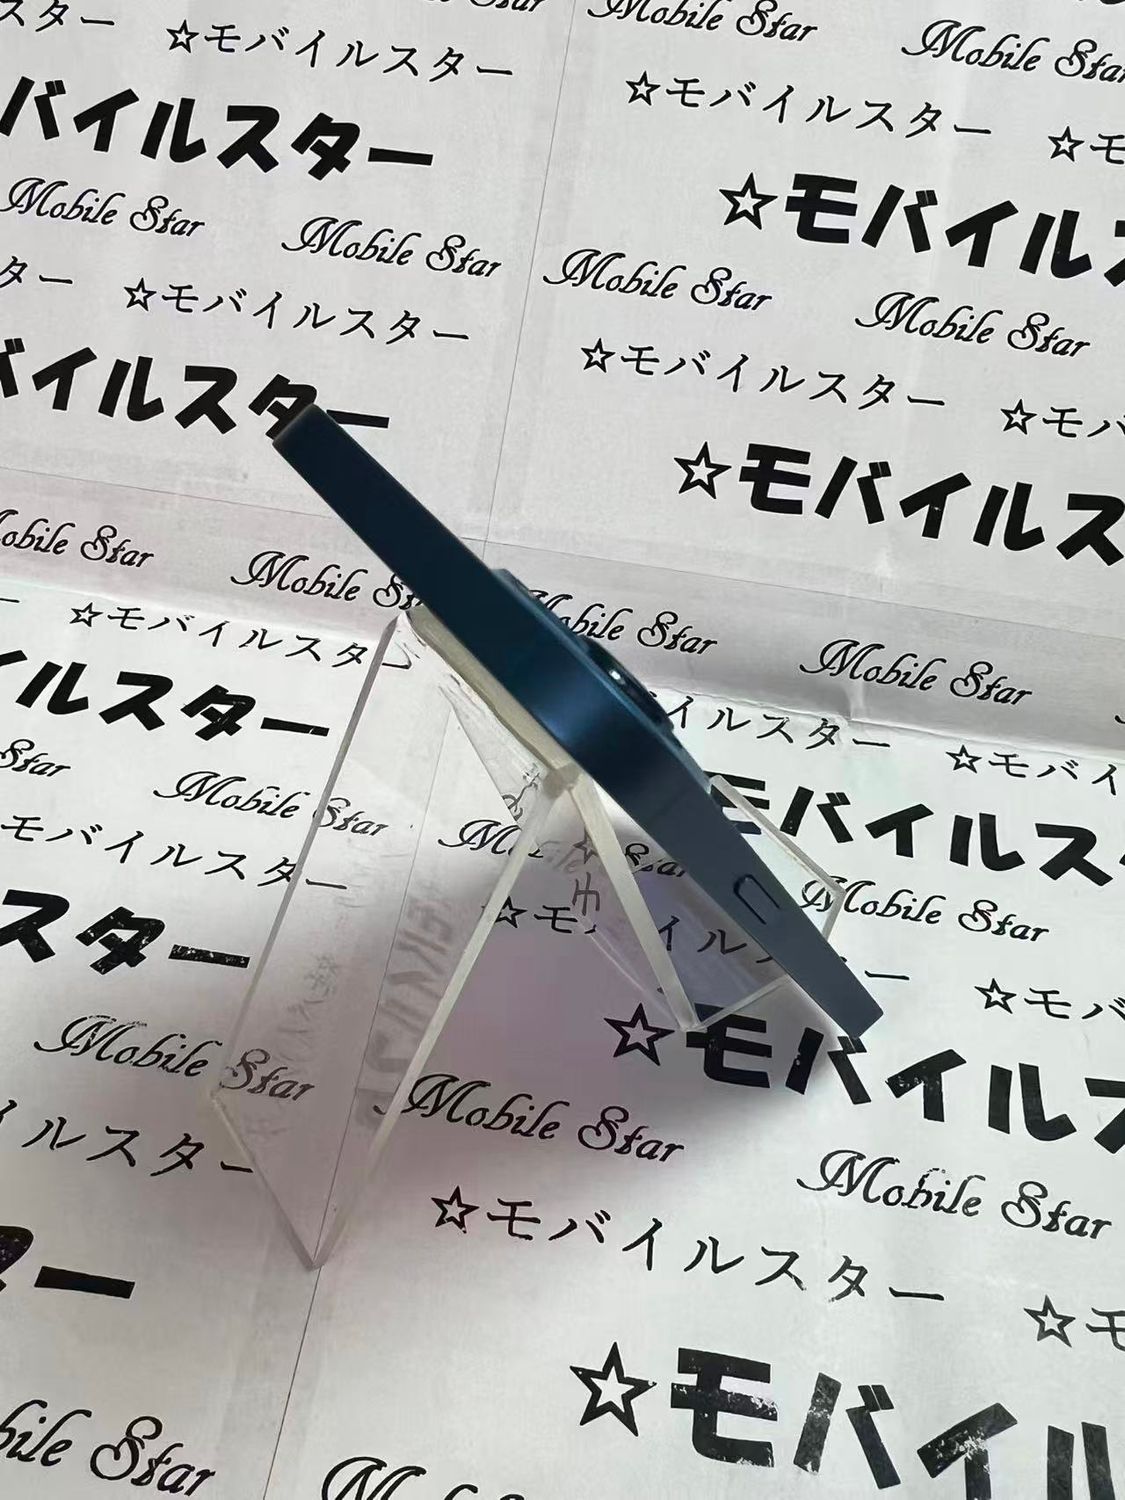 スター ☆モバイルスター
Mobile Star
Mobile Star
☆モバイルスター ☆モ
バイルスター
☆モバイル
Mobile Star Mobile Star
Mobile Star Mobile Star
ター ☆モバイルスター
☆モバイルスター ☆モバ
バイルスター
☆モバイルス
obile Star Mobile
Mobile Star Mobile Star
☆モバイルスタ
イルスター ☆モバイ
イルスター
モバイルス
Star Mobile Star
Mobile Star
モバイルスター
☆モ イル ー ☆モバ
スター
☆モバイル
Mobile Star Mobile Star
Mobile Star
イルスター ☆モバイルスター ☆モ
スター
☆モバイル
bile Star